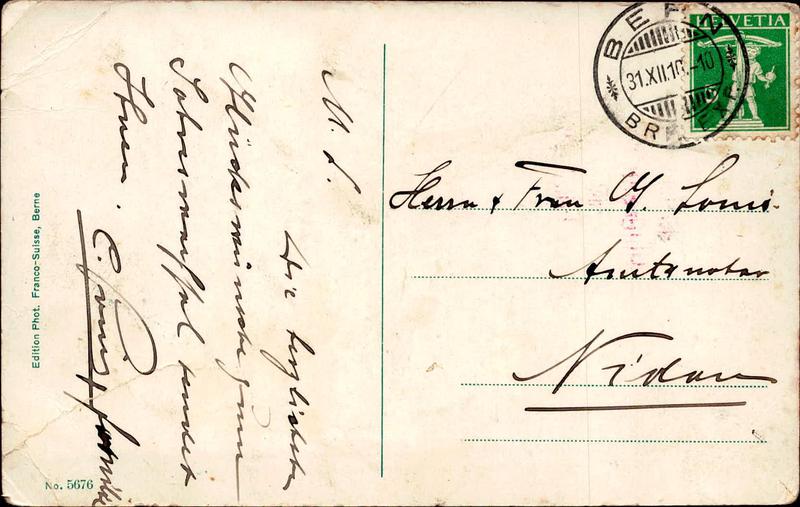 M. L.
Die herzlichsten
Glückswünsche zum
Jahreswechsel sendet
Ihnen.
Edition Phot. Franco-Suisse, Berne
No. 5676
BERN
31.XII.10.-10
BRIEFEXP.
HELVETIA
Herrn & Frau
Amtsnotar
Nidau